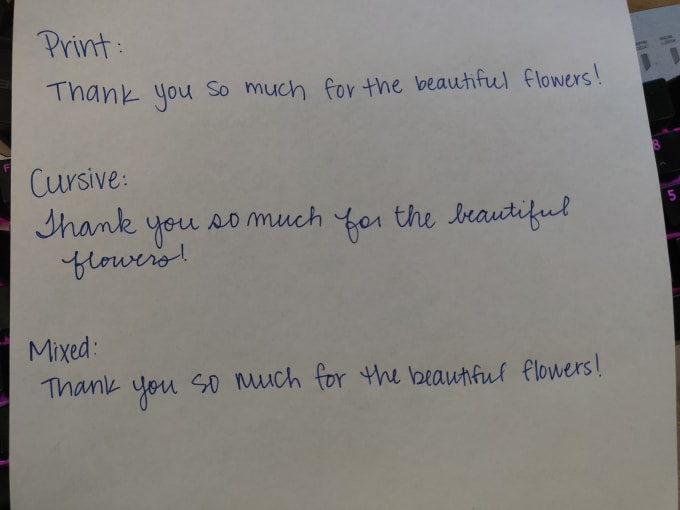 Print:
Thank you so much for the beautiful flowers!
Cursive:
Thank you so much for the beautiful
flowers!
Mixed:
Thank you so much for the beautiful flowers!
8
5